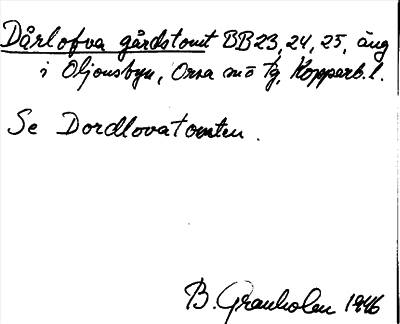 Dårlofva gårdstomt BB23, 24, 25, äng
i Oljonsbyn, Orsa sn o tg, Kopparb. l.
Se Dordlovatomten.
B. Granholm 1946